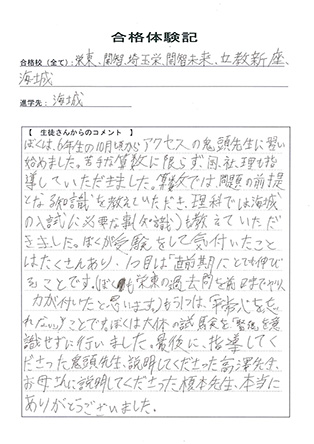 合格体験記
合格校(全て):栄東、開智、埼玉栄、開智未来、立教新座、
海城
進学先:海城
【 生徒さんからのコメント 】
ぼくは、6年生の10月頃からアクセスの鬼頭先生に習い
始めました。苦手な算数に限らず国、社、理も指
導していただきました。算数では、問題の前提
となる知識を教えていただき、理科では海城
の入試に必要な事(知識)も教えていただ
きました。ぼくが受験をして気付いたこと
はたくさんあり、1つ目は「直前期にとても伸び
る」ことです。(ぼくも栄東の過去問を前日までやり、
力が付いたと思います。)もう1つは、「平常心を忘
れない。」ことです。ぼくは大体の試験を「緊張」を意
識せずに行いました。最後に、指導してく
ださった鬼頭先生、説明してくださった高澤先生、
お母さんに説明してくださった榎本先生、本当に
ありがとうございました。